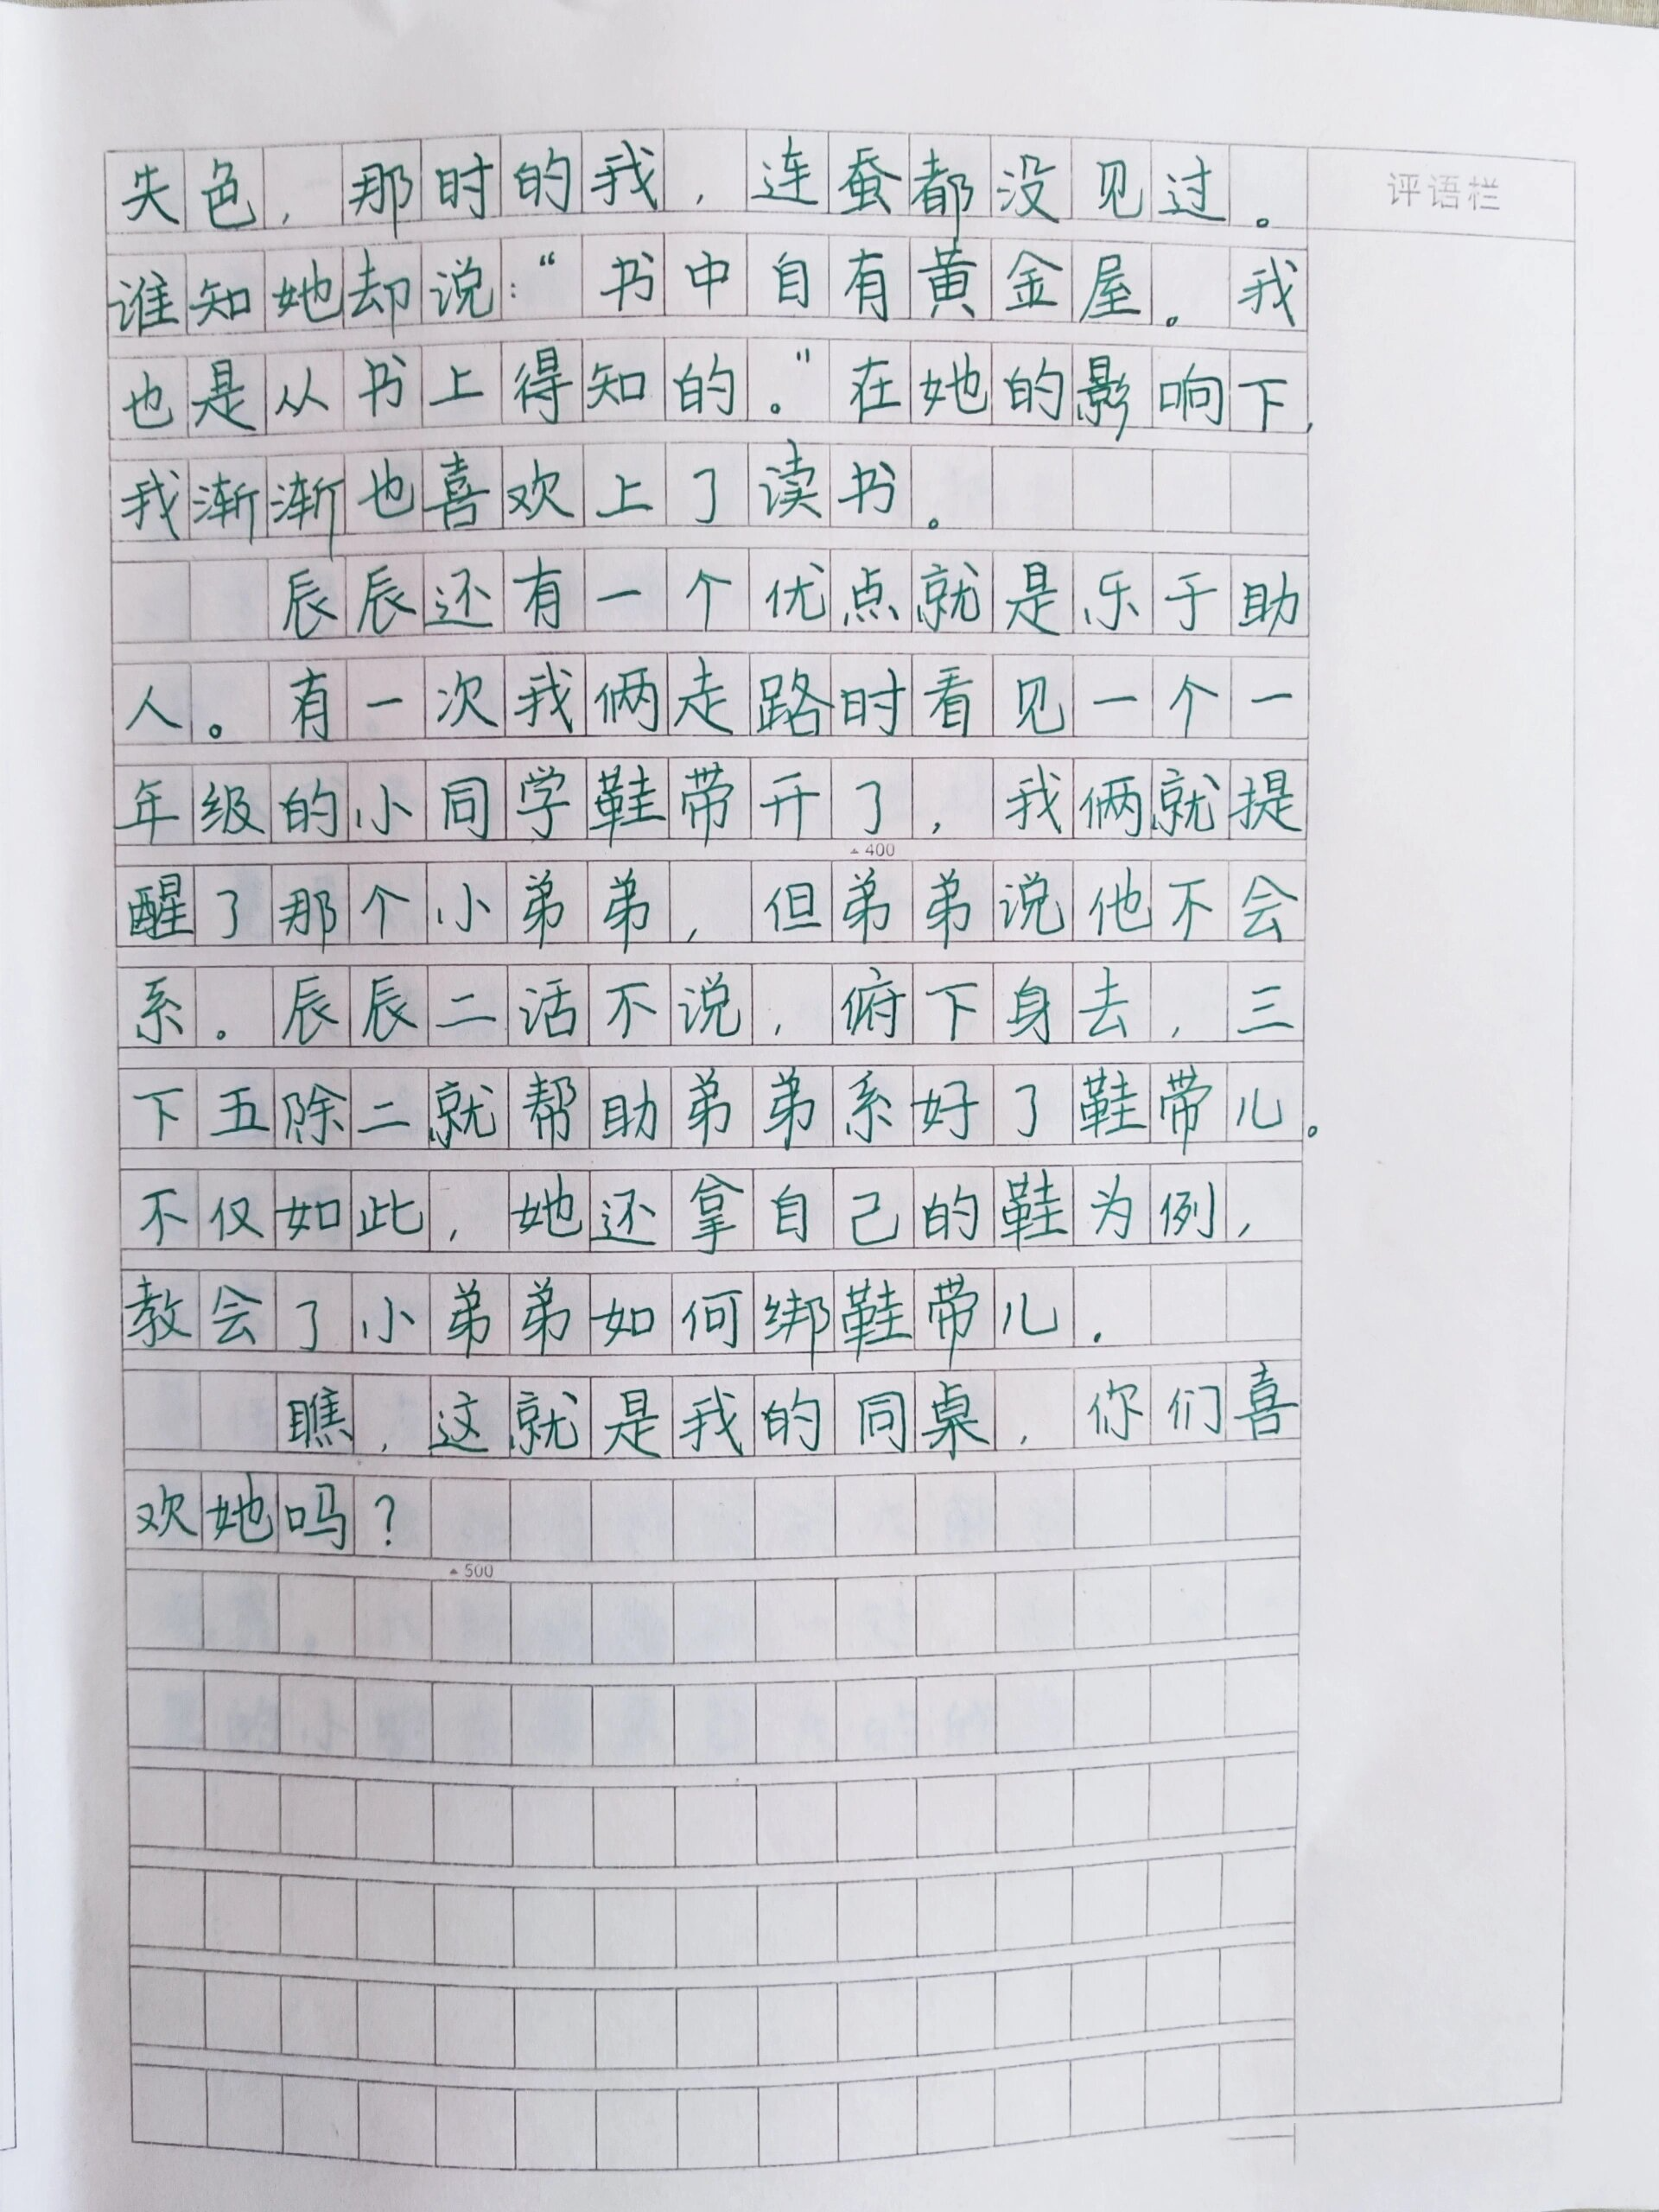 失色，那时的我，连蚕都没见过。
评语栏
谁知她却说：“书中自有黄金屋。我
也是从书上得知的。”在她的影响下，
我渐渐也喜欢上了读书。
辰辰还有一个优点就是乐于助
人。有一次我俩走路时看见一个一
年级的小同学鞋带开了，我俩就提
400
醒了那个小弟弟，但弟弟说他不会
系。辰辰二话不说，俯下身去，三
下五除二就帮助弟弟系好了鞋带儿。
不仅如此，她还拿自己的鞋为例，
教会了小弟弟如何绑鞋带儿。
瞧，这就是我的同桌，你们喜
欢她吗？
500